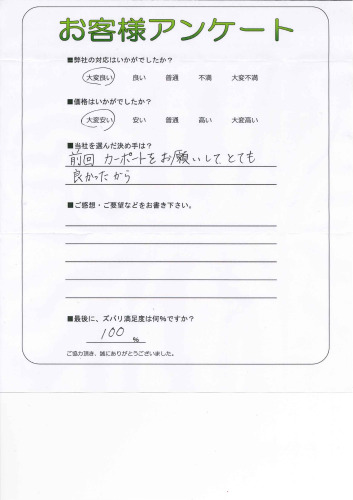 お客様アンケート
■弊社の対応はいかがでしたか?
大変良い 良い 普通 不満 大変不満
■価格はいかがでしたか?
大変安い 安い 普通 高い 大変高い
■当社を選んだ決め手は?
前回 カーポートをお願いしてとても
良かったから
■ご感想・ご要望などをお書き下さい。
■最後に、ズバリ満足度は何%ですか?
100 %
ご協力頂き、誠にありがとうございました。